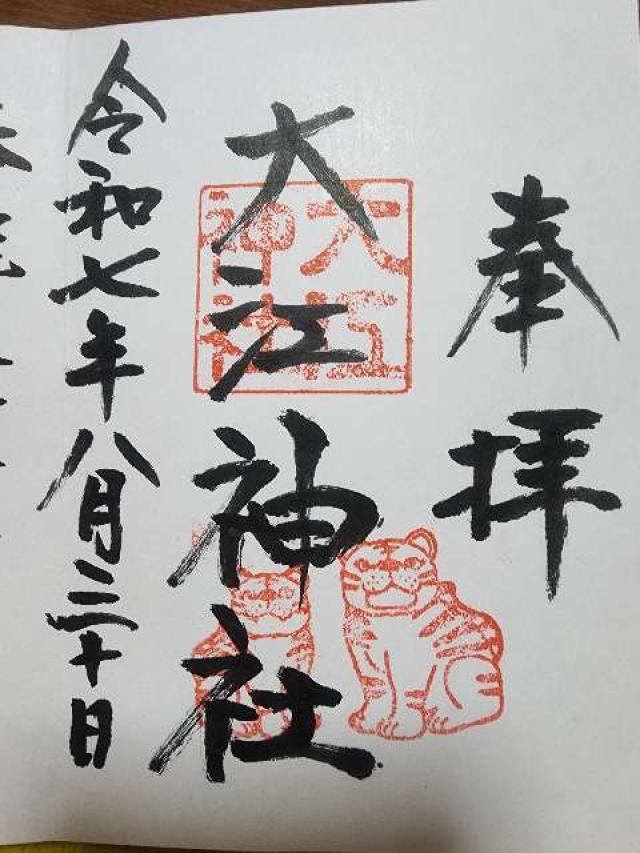 奉拝
大江神社
大江
神社
令和七年八月三十日